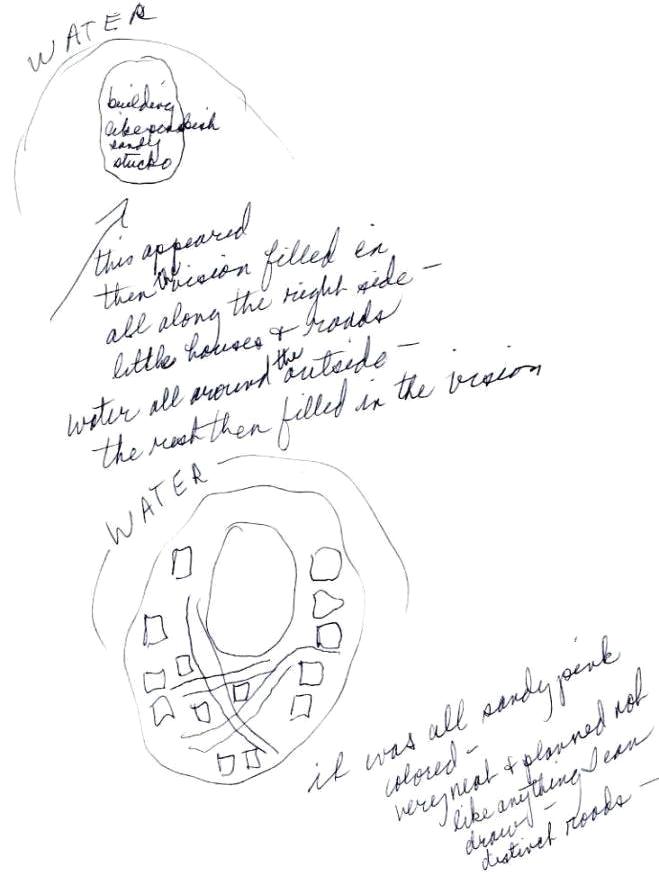 WATER
building
like pinkish
sandy
stucko
this appeared
then the vision filled in
all along the right side –
little houses & roads
water all around the outside –
the rest then filled in the vision
WATER
it was all sandy pink
colored –
very neat & planned not
like anything I can
draw –
distinct roads –